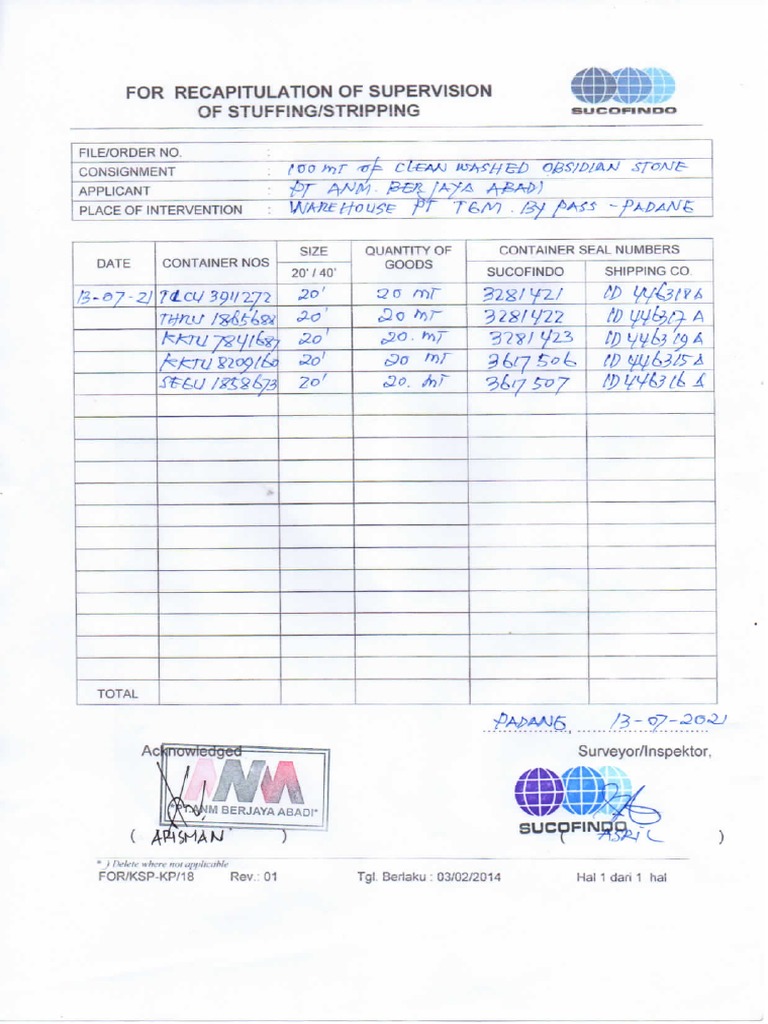 FOR RECAPITULATION OF SUPERVISION
OF STUFFING/STRIPPING
SUCOFINDO
FILE/ORDER NO. :
CONSIGNMENT : 100 MT OF CLEAN WASHED OBSIDIAN STONE
APPLICANT : PT ANM. BERJAYA ABADI
PLACE OF INTERVENTION : WAREHOUSE PT TGM. BY PASS - PADANG
DATE CONTAINER NOS SIZE QUANTITY OF GOODS CONTAINER SEAL NUMBERS
20' / 40' SUCOFINDO SHIPPING CO.
13-07-21 TLCU 3911272 20' 20 MT 3281421 ID 446318A
THRU 1865688 20' 20 MT 3281422 ID 446317 A
KKTU 7841687 20' 20. MT 3281423 ID 446319A
KKTU 8209160 20' 20 MT 3617506 ID 446315A
SEGU 1858673 20' 20. MT 3617507 ID 446316 A
TOTAL
PADANG, 13-07-2021
Acknowledged Surveyor/Inspektor,
ANM
*PT.ANM BERJAYA ABADI*
SUCOFINDO
( ARISMAN ) ( ASRIL )
* ) Delete where not applicable
FOR/KSP-KP/18 Rev.: 01 Tgl. Berlaku : 03/02/2014 Hal 1 dari 1 hal